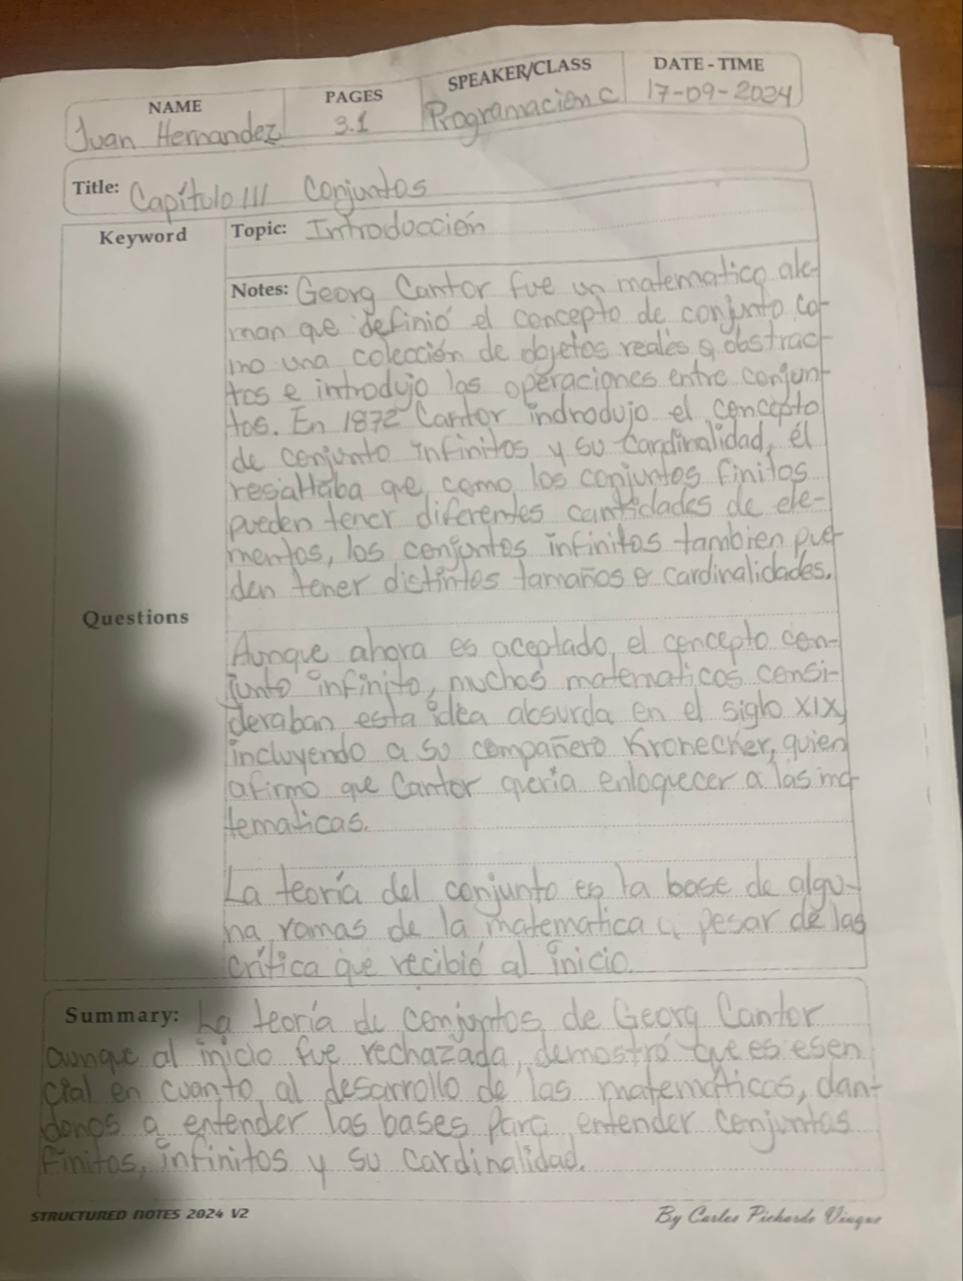 NAME PAGES SPEAKER/CLASS DATE - TIME
Juan Hernandez 3.1 Programacion C 17-09-2024
Title: Capítulo III Conjuntos
Keyword
Topic: Introducción
Notes: Georg Cantor fue un matematico ale-
man que definió el concepto de conjunto co-
mo una colección de objetos reales o abstrac-
tos e introdujo las operaciones entre conjun-
tos. En 1872 Cantor indrodujo el concepto
de conjunto infinitos y su cardinalidad, él
resaltaba qe, como los conjuntos finitos
pueden tener diferentes cantidades de ele-
mentos, los conjuntos infinitos tambien pue-
den tener distintos tamaños o cardinalidades.
Questions
Aunque ahora es aceptado, el concepto con-
junto infinito, muchos matematicos consi-
deraban esta idea absurda en el siglo XIX,
incluyendo a su compañero Kronecker, quien
afirmo que Cantor queria enloquecer a las ma-
tematicas.
La teoría del conjunto es la base de algu-
na ramas de la matematica a pesar de las
crítica que recibió al inicio.
Summary: La teoría de conjuntos de Georg Cantor
aunque al inicio fue rechazada, demostró que es esen
cial en cuanto al desarrollo de las matemáticas, dan-
donos a entender las bases para entender conjuntos
finitos, infinitos y su cardinalidad.
STRUCTURED NOTES 2024 V2
By Carlos Pichardo Viuque